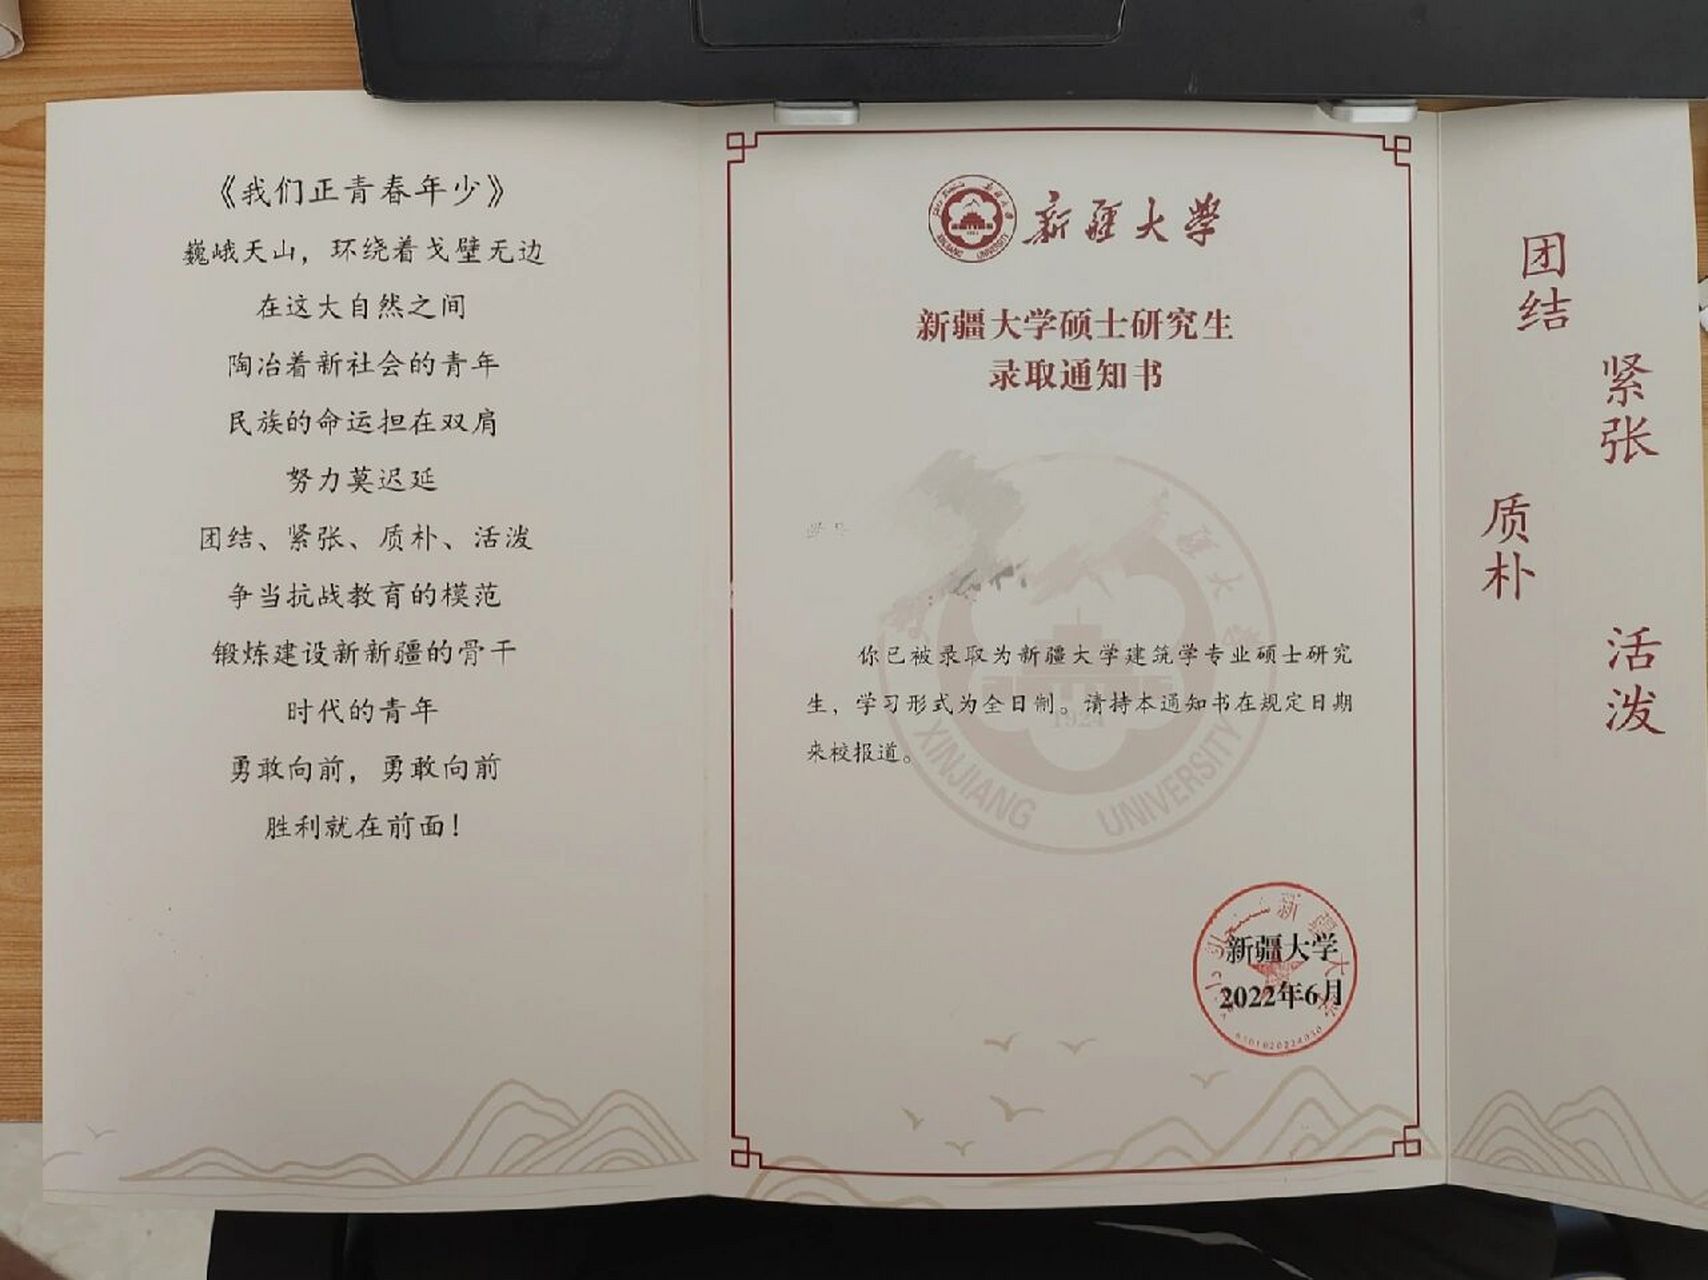 《我们正青春年少》
巍峨天山，环绕着戈壁无边
在这大自然之间
陶冶着新社会的青年
民族的命运担在双肩
努力莫迟延
团结、紧张、质朴、活泼
争当抗战教育的模范
锻炼建设新新疆的骨干
时代的青年
勇敢向前，勇敢向前
胜利就在前面！
新疆大学
XINJIANG UNIVERSITY
新疆大学硕士研究生
录取通知书
学号
你已被录取为新疆大学建筑学专业硕士研究
生，学习形式为全日制。请持本通知书在规定日期
来校报道。
1924
XINJIANG UNIVERSITY
新疆大学
新疆大学
2022年6月
团结
紧张
质朴
活泼